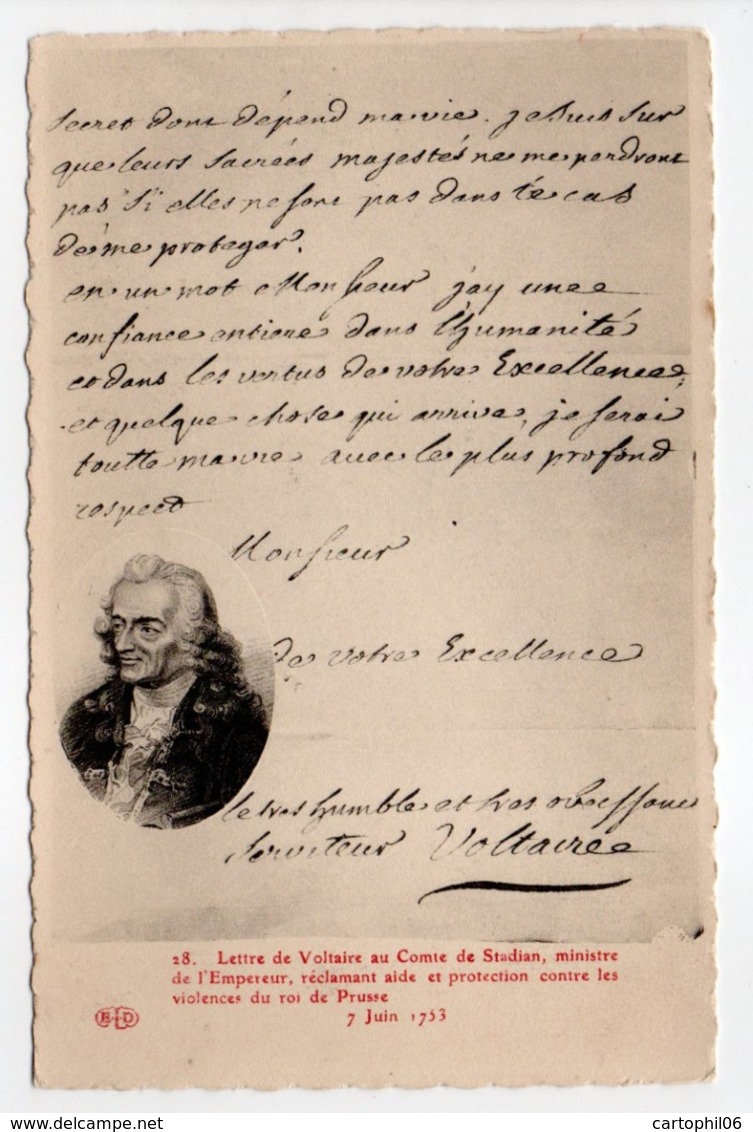 secret dont dépend ma vie. je suis sur
que leurs sacrées majestés ne me perdront
pas si elles ne sont pas dans le cas
de me proteger.
en un mot Monsieur j'ay une
confiance entiere dans l'humanité
et dans les vertus de votre Excellence,
et quelque chose qui arrive, je serai
toutte ma vie avec le plus profond
respect
Monsieur
de votre Excellence
le tres humble et tres obeissant
serviteur Voltaire
28. Lettre de Voltaire au Comte de Stadian, ministre
de l'Empereur, réclamant aide et protection contre les
violences du roi de Prusse
7 Juin 1753
ELD
www.delcampe.net
cartophil06